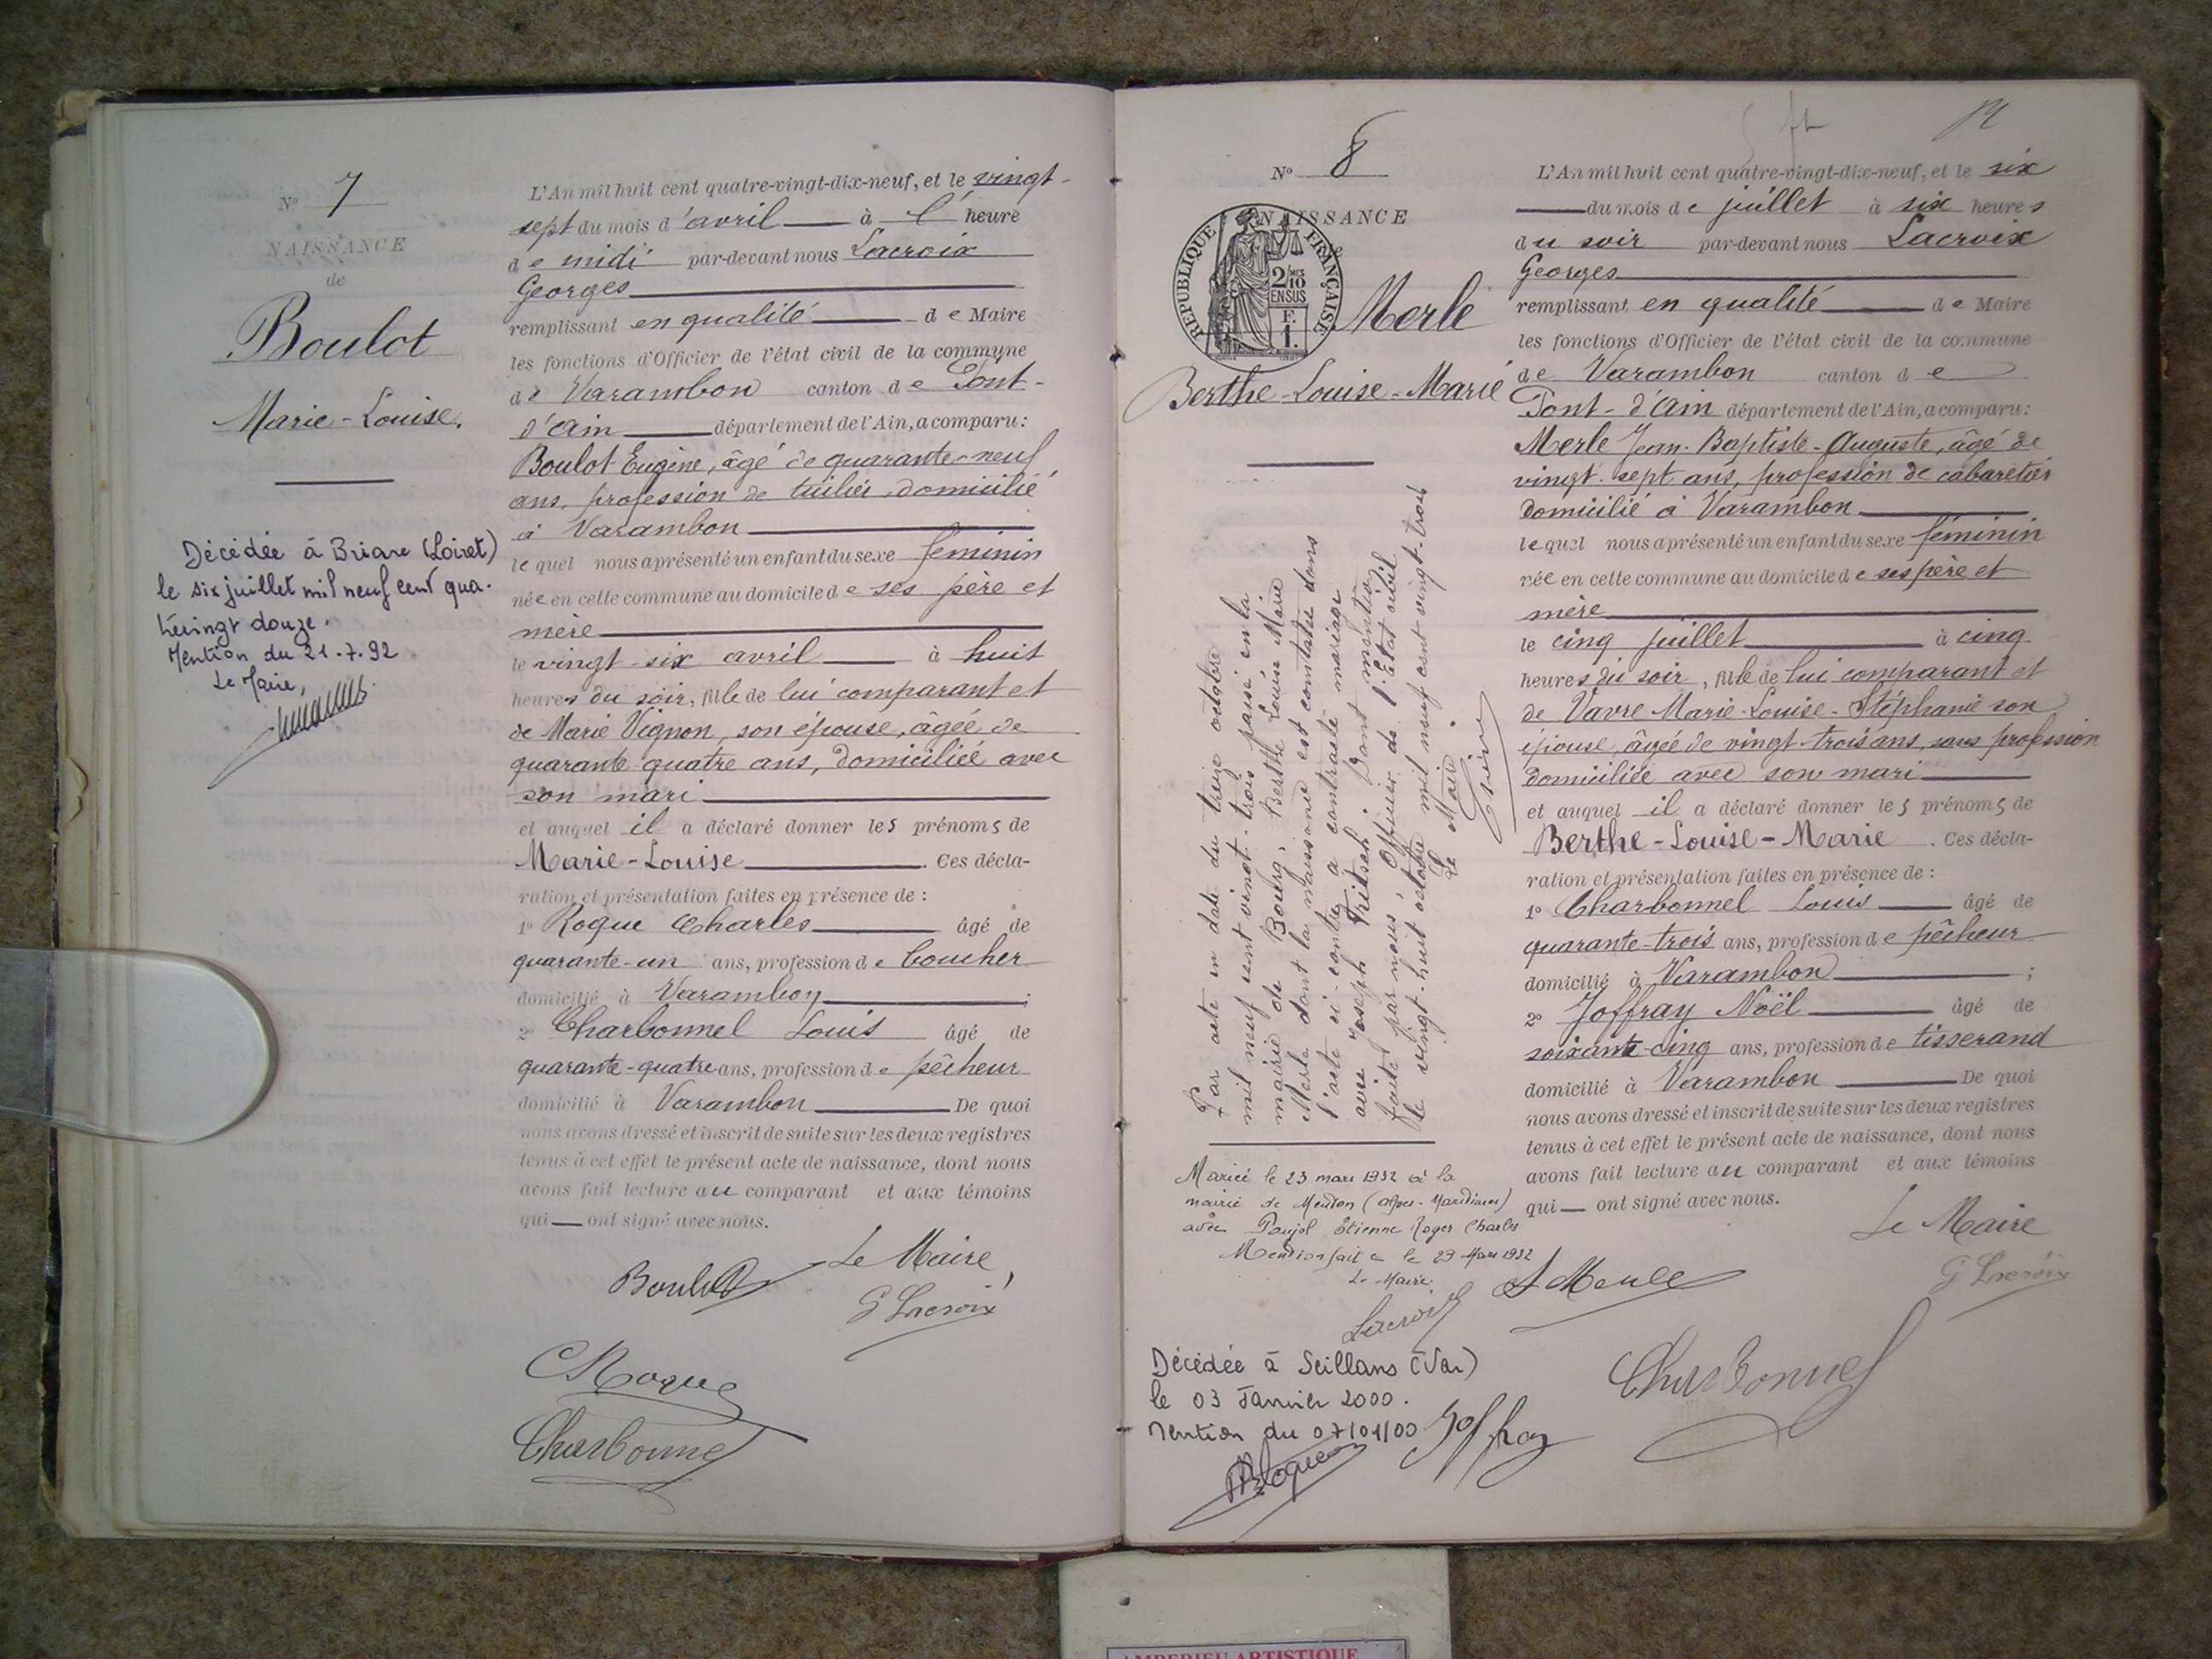 N° 7
NAISSANCE
de
Boulot
Marie-Louise.
Décédée à Briare (Loiret)
le six juillet mil neuf cent qua-
trevingt douze.
Mention du 21.7.92
Le Maire,
L'An mil huit cent quatre-vingt-dix-neuf, et le vingt-
sept du mois d'avril à l' heure
de midi par-devant nous Lacroix
Georges
remplissant en qualité de Maire
les fonctions d'Officier de l'état civil de la commune
de Varambon canton de Pont-
d'Ain département de l'Ain, a comparu:
Boulot Eugène, âgé de quarante-neuf
ans, profession de tuilier, domicilié
à Varambon
lequel nous a présenté un enfant du sexe féminin
née en cette commune au domicile de ses père et
mère
le vingt-six avril à huit
heures du soir, fille de lui comparant et
de Marie Vignon, son épouse, âgée de
quarante-quatre ans, domiciliée avec
son mari
et auquel il a déclaré donner les prénoms de
Marie-Louise . Ces décla-
ration et présentation faites en présence de :
1° Roque Charles âgé de
quarante-un ans, profession de boucher
domicilié à Varambon ;
2° Charbonnel Louis âgé de
quarante-quatre ans, profession de pêcheur
domicilié à Varambon De quoi
nous avons dressé et inscrit de suite sur les deux registres
tenus à cet effet le présent acte de naissance, dont nous
avons fait lecture au comparant et aux témoins
qui ont signé avec nous.
Boulot Le Maire,
G Lacroix
C Roque
Charbonnel
N° 8
NAISSANCE
de
REPUBLIQUE FRANÇAISE
2/10
EN SUS
F.
1.
Merle
Berthe-Louise-Marie
Par acte en date du treize octobre
mil neuf cent vingt-trois passé en la
mairie de Bourg, Berthe Louise Marie
Merle dont la naissance est constatée dans
l'acte ci-contre a contracté mariage
avec Joseph Fritsch. Dont mention
faite par nous, Officier de l'Etat civil
le vingt-huit octobre mil neuf cent vingt-trois
Le Maire
Mariée le 23 mars 1932 à la
mairie de Menton (Alpes-Maritimes)
avec Poujol Etienne Roger Charles
Mention faite le 29 Mars 1932
Le Maire
Lacroix
Décédée à Seillans (Var)
le 03 Janvier 2000.
Mention du 07/01/00
L'An mil huit cent quatre-vingt-dix-neuf, et le six
du mois de juillet à six heures
du soir par-devant nous Lacroix
Georges
remplissant en qualité de Maire
les fonctions d'Officier de l'état civil de la commune
de Varambon canton de
Pont-d'Ain département de l'Ain, a comparu:
Merle Jean-Baptiste-Auguste, âgé de
vingt-sept ans, profession de cabaretier
domicilié à Varambon
lequel nous a présenté un enfant du sexe féminin
née en cette commune au domicile de ses père et
mère
le cinq juillet à cinq
heures du soir, fille de lui comparant et
de Vavre Marie-Louise-Stéphanie son
épouse, âgée de vingt-trois ans, sans profession
domiciliée avec son mari
et auquel il a déclaré donner les prénoms de
Berthe-Louise-Marie . Ces décla-
ration et présentation faites en présence de :
1° Charbonnel Louis âgé de
quarante-trois ans, profession de pêcheur
domicilié à Varambon ;
2° Joffray Noël âgé de
soixante-cinq ans, profession de tisserand
domicilié à Varambon De quoi
nous avons dressé et inscrit de suite sur les deux registres
tenus à cet effet le présent acte de naissance, dont nous
avons fait lecture au comparant et aux témoins
qui ont signé avec nous.
Le Maire
A Merle G Lacroix
Charbonnel
Joffray
AMBERIEU ARTISTIQUE